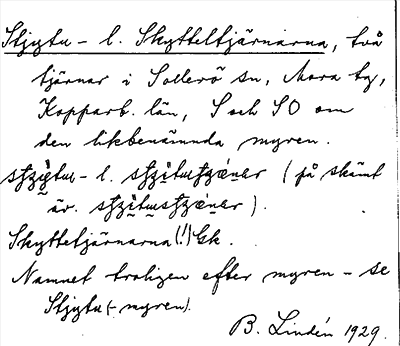 Stjytu - l. Skytteltjärnarna, två
tjärnar i Sollerö sn, Mora tg,
Kopparb. län, S och SO om
den likbenämnda myren.
- l. (på skämt
äv. ).
Skyttetjärnarna (!) Gk.
Namnet troligen efter myren - se
Stjytu (- myren).
B. Lindén 1929.